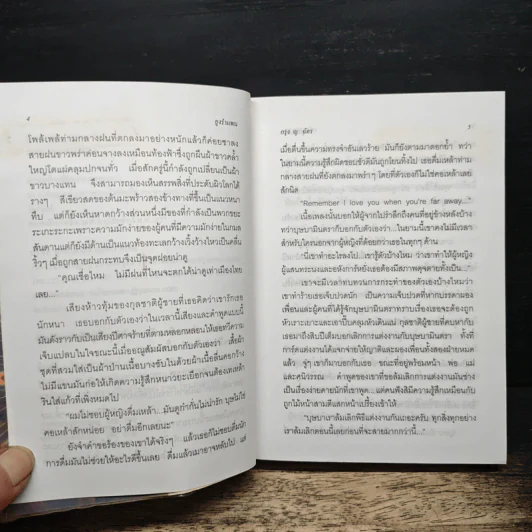 4
อูงรำแพน
โพล้เพล้ท่ามกลางฝนที่ตกลงมาอย่างหนักแล้วก็ค่อยซาลง
สายฝนขาวพร่าค่อนจางลงเหมือนท้องฟ้าซึ่งถูกมือผ้าขาวคล้ำ
ใหญ่โตแผ่คลุมปกจนทั่ว เมื่อสักครู่นี้กำลังถูกเปลี่ยนเป็นผ้า
ขาวบางแทน จึงสามารถมองเห็นสรรพสิ่งที่ประดับผิวโลกได้
รางๆ สีเขียวสดของต้นมะพร้าวสองข้างทางที่ขึ้นเป็นแนวหนา
ทึบ แต่ก็ยังเห็นหาดกว้างส่วนหนึ่งมีของที่กำลังเป็นพวกขยะ
ระเกะระกะเพราะความมักง่ายของผู้คนที่มีความมักง่ายในกมล
สันดานแต่ก็ยังมีด้านเป็นแนวท้องทะเลกว้างเวิ้งว้างไหวเป็นคลื่น
ริ้วๆ เมื่อถูกสายฝนกระทบจึงเป็นจุดฝอยน่าดู
"คุณเชื่อไหม ไม่มีผืนที่ไหนจะตกได้น่าดูเท่าเมืองไทย
เลย..."
เสียงห้าวทุ้มของกุลชาติผู้ชายที่เธอคิดว่าเขารักเธอ
นักหนา เธอบอกกับตัวเองว่าในเวลานี้เสียงและคำพูดแบบนี้
มันดังราวกับเป็นเสียงปีศาจร้ายที่ตามหลอกหลอนให้เธอทวีความ
เจ็บแปลบในใจขณะนี้เมื่ออณูสัมผัสบอกกับตัวเองว่า เสื้อผ้า
ชุดที่สวมใส่เป็นผ้าป่านเนื้อบางซับในด้วยผ้าเนื้อลื่นคอกว้าง
ไม่มีแขนมันก่อให้เกิดความรู้สึกหนาวยะเยือกจนต้องเทเหล้า
รินใส่แก้วที่เพิ่งหมดไป
"ผมไม่ชอบผู้หญิงดื่มเหล้า..มันดูร่ำกันไม่น่ารัก บุษบาไม่ใช่
คอเหล้าสักหน่อย อย่าดื่มอีกเลยนะ"
ยังจำคำขอร้องของเขาได้จริงๆ แล้วเธอก็ไม่ชอบดื่มนัก
การดื่มมันไม่ช่วยให้อะไรดีขึ้นเลย ดื่มแล้วเมาอาจหลับไป แต่
กรุง ญ. ฉัตร
5
เมื่อตื่นขึ้นความทรงจำอันเลวร้าย มันก็ยังตามมาตอกย้ำ ทว่า
ในยามนี้ความรู้สึกผิดชอบชั่วดีมันถูกโยนทิ้งไป เธอดื่มเหล้าท่าม
กลางสายฝนที่ยังตกลงมาพร่ำๆ โดยที่ตัวเองก็ไม่ใช่คอเหล้าเลย
สักนิด
"Remember I love you when you're far away..."
เนื้อเพลงนั้นบอกให้ผู้จากไปรำลึกถึงคนที่อยู่ข้างหลังบ้าง
ทว่าบุษบามินตราก็บอกกับตัวเองว่า...ในยามนี้เขาคงไม่มีเวลา
สำหรับใครนอกจากผู้หญิงที่ด้อยกว่าเธอในทุกๆ ด้าน
"นี่เขาทำอะไรลงไป....เขารู้ตัวบ้างไหม ว่าทำให้ผู้หญิง
ผู้แสนทรนงและอหังการ์หยิ่งเธอต้องมีสภาพดุจตายทั้งเป็น..."
เขาจะมีเวลาทบทวนการกระทำของตัวเองบ้างไหมว่า
เขาทำร้ายเธอเจ็บปวดนัก เป็นความเจ็บปวดที่หากบรรดามอง
เพื่อนและผู้คนที่ได้รู้จักบุษบามินตราทราบเรื่องนี้เธอจะต้องถูก
หัวเราะเยาะและเอาปี๊บคลุมหัวเดินแน่ กุลชาติผู้ชายที่คบหากับ
เธอมาถึงสิบปีเต็มบอกเลิกการแต่งงานกับบุษบามินตรา ทั้งที่
การ์ดแต่งงานได้แจกจ่ายให้ญาติและมองเพื่อนทั้งสองฝ่ายหมด
แล้ว จู่ๆ เขาก็มาบอกกับเธอ ขณะที่อยู่พร้อมหน้า พ่อ แม่
และศนิวรรณ คำพูดของเขาที่ขอล้มเลิกการแต่งงานมันช่าง
เป็นเรื่องง่ายดายนักที่เขาจะพูด...แต่คนฟังสิมีความรู้สึกเหมือนกับ
ถูกไม้หน้าสามตีแสกหน้าเปรี้ยงเข้าให้
"บุษบาเราล้มเลิกพิธีแต่งงานกันเถอะครับ ทุกสิ่งทุกอย่าง
เราล้มเลิกตอนนี้เลยก่อนที่จะสายมากกว่านี้..."